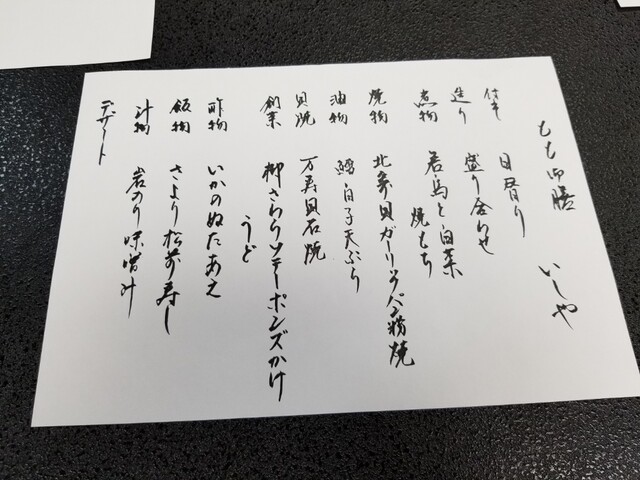 もも御膳 いしや
付き 日替り
造り 盛り合わせ
煮物 若鳥と白菜
焼もち
焼物 北象貝ガーリックパン粉焼
油物 鱈白子天ぷら
貝焼 万寿貝石焼
創菜 柳さわらソテーポンズかけ
うど
酢物 いかのぬたあえ
飯物 さより松前寿し
汁物 岩のり味噌汁
デザート